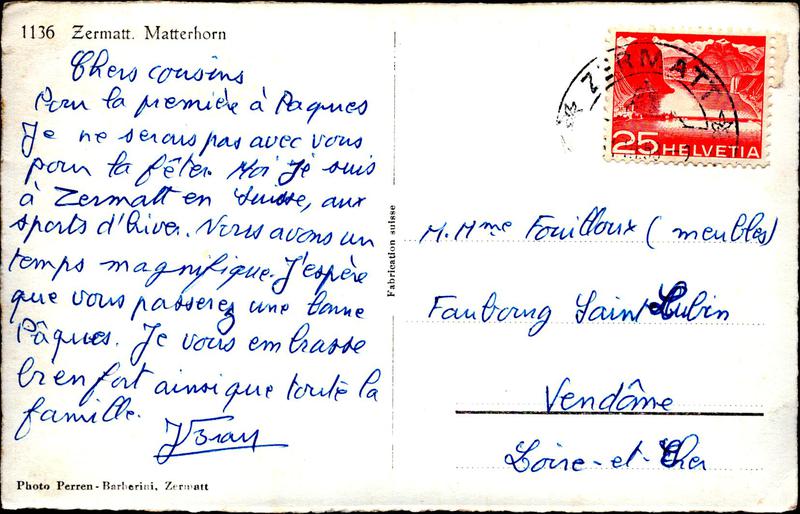 1136 Zermatt. Matterhorn
Chers cousins
Pour la première à Paques
Je ne serais pas avec vous
pour la fêter. Moi je suis
à Zermatt en Suisse, aux
sports d'hiver. Nous avons un
temps magnifique. J'espère
que vous passerez une bonne
Pâques. Je vous embrasse
bien fort ainsi que toute la
famille.
Photo Perren-Barberini, Zermatt
Fabrication suisse
ZERMATT
25 HELVETIA
M. Mme Fouilloux (meubles)
Faubourg Saint Lubin
Vendôme
Loire-et-Cher